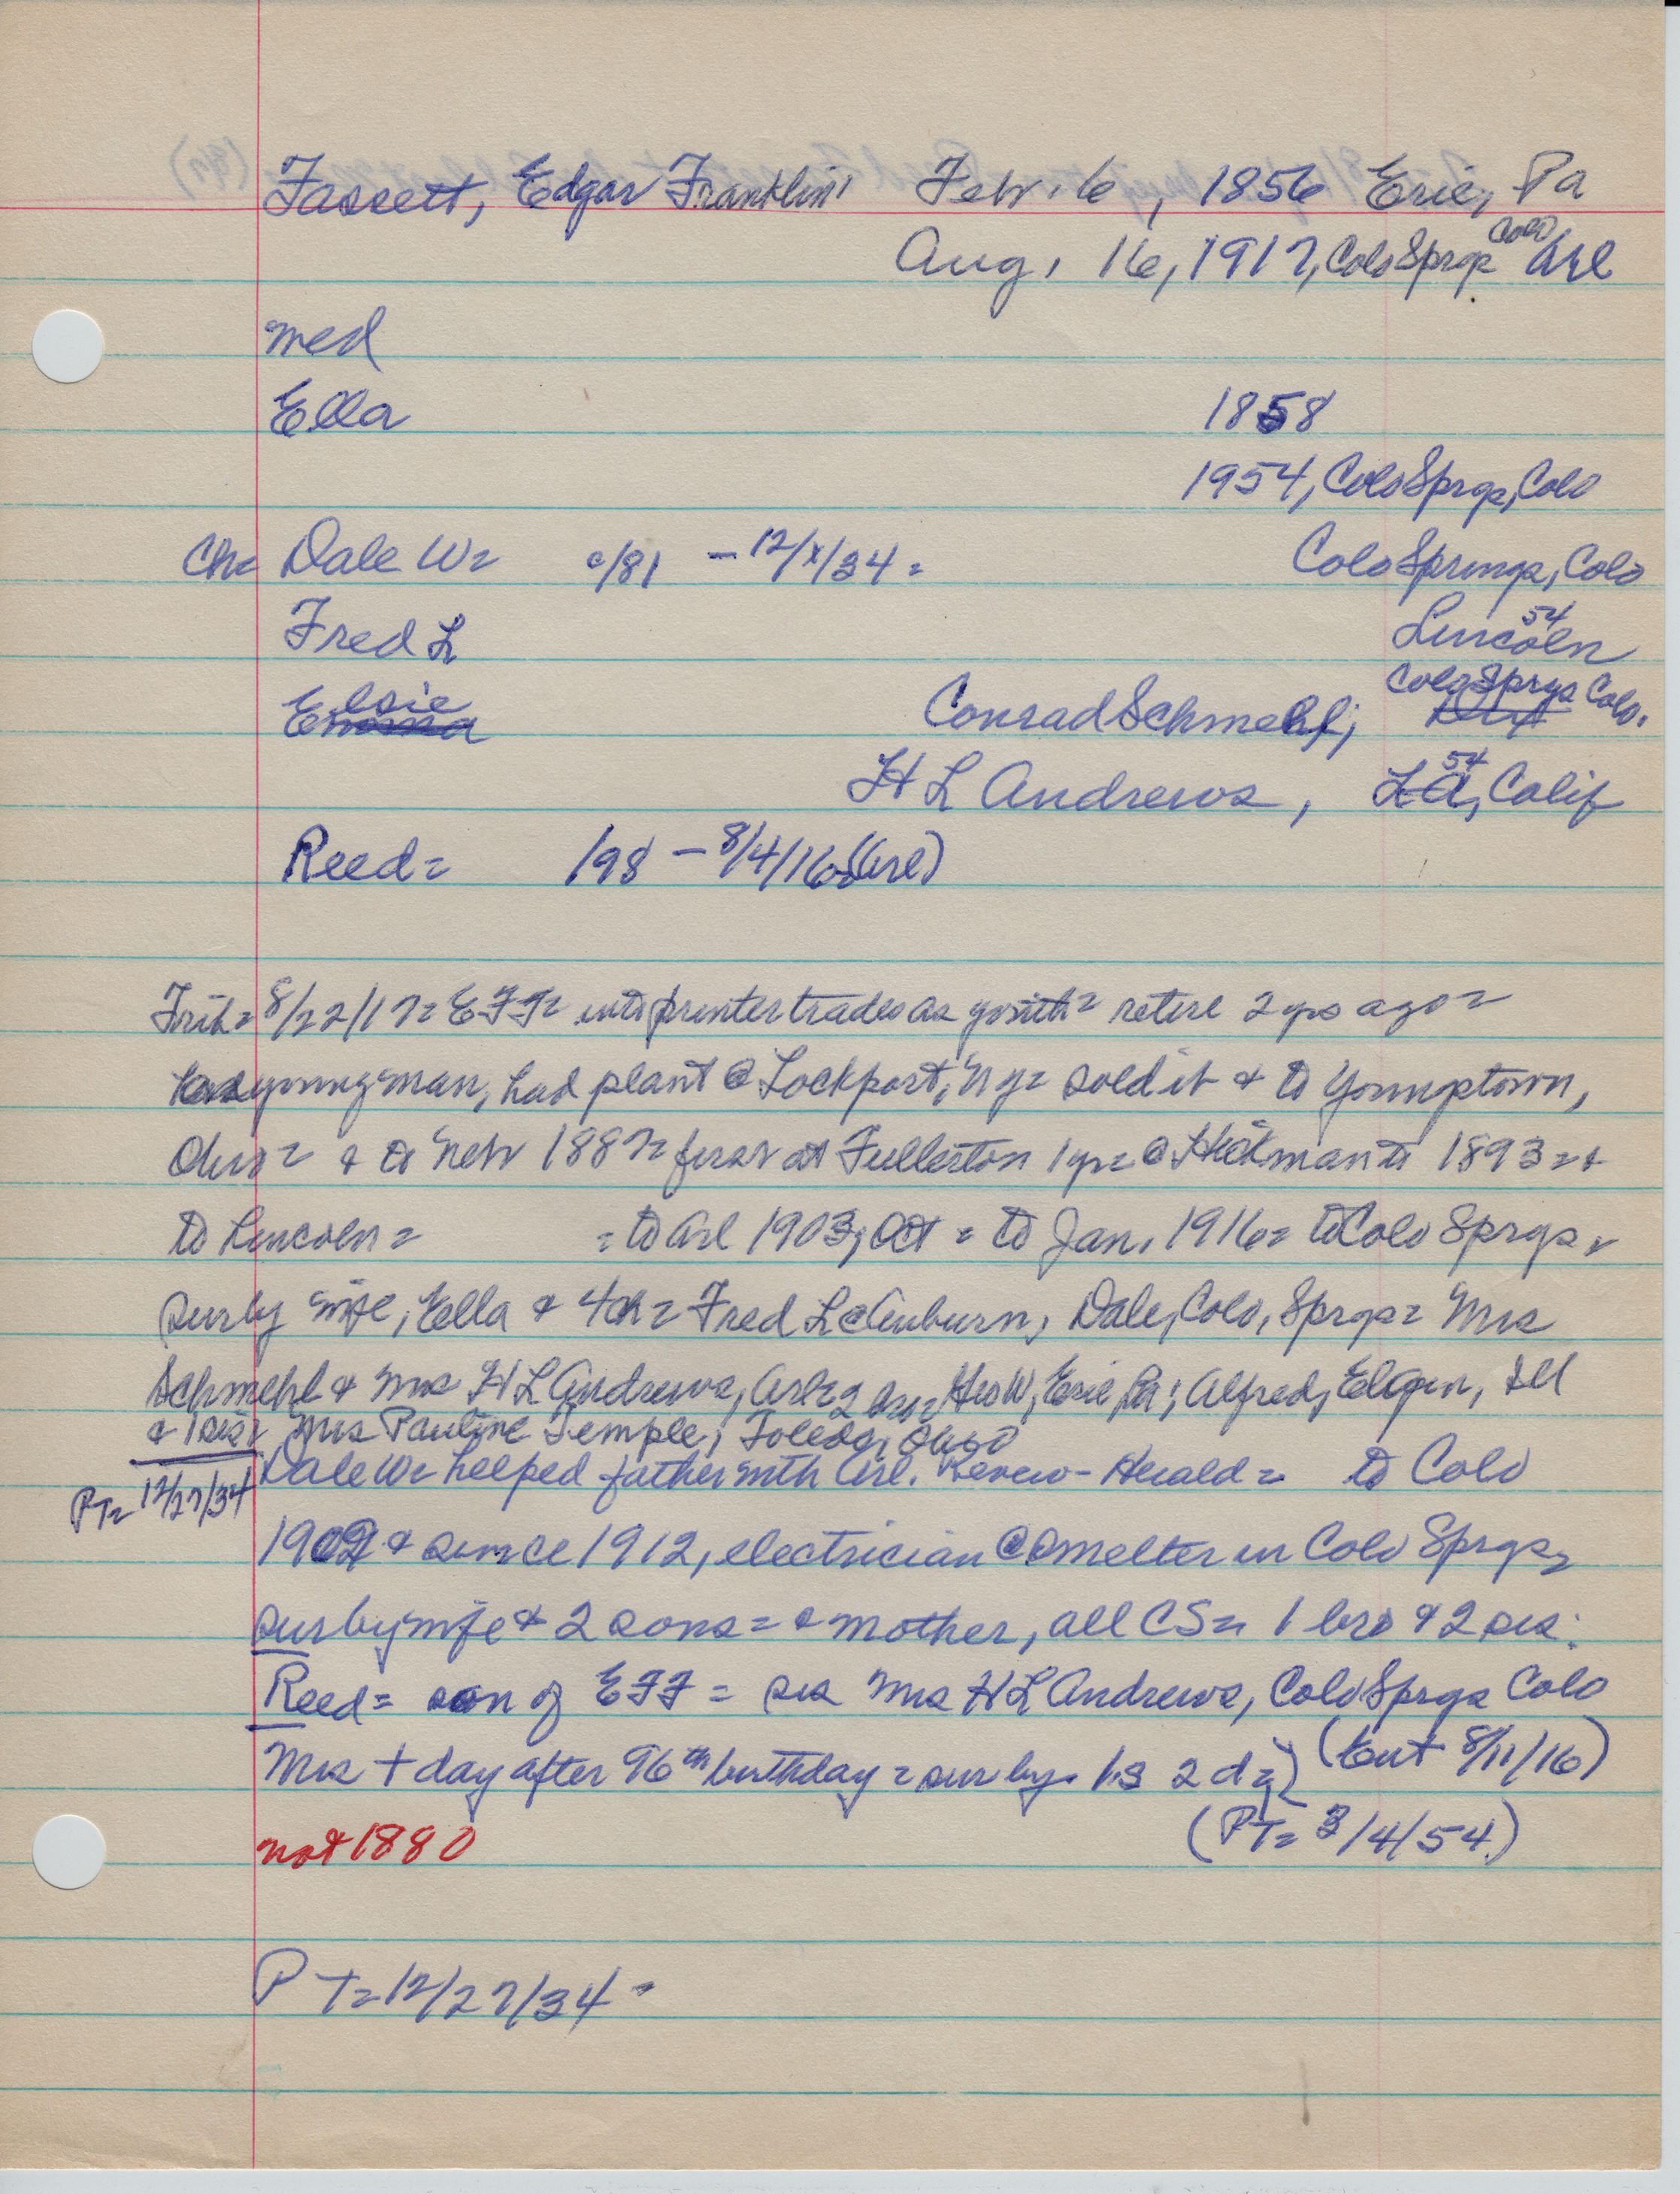 Fassett, Edgar Franklin Febr. 6, 1856 Erie, Pa
Aug, 16, 1917, Colo Sprgs Colo Arl
med
Ella 1858
1954, Colo Sprgs, Colo
Ch= Dale W= c/81 - 12/x/34= Colo Springs, Colo
Fred L Lincoln 54
Elsie Emma Conrad Schmehl; Colo Sprgs Colo.
H L Andrews, LA, 54 Calif
Reed= /98 - 8/4/16 (Arl)
Trib= 8/22/17= EFF= into printer trades as youth= retire 2 yrs ago=
as young man, had plant @ Lockport, NY= sold it & to Youngstown,
Ohio= & to Nebr 1887= first at Fullerton 1 yr= @ Hickman to 1893= &
to Lincoln= = to Arl 1903, Oct = to Jan. 1916= to Colo Sprgs,
sur by wife, Ella & 4 ch= Fred L @ Auburn, Dale, Colo, Sprgs= Mrs
Schmehl & Mrs H L Andrews, Arl= 2 bro= Geo W, Erie, Pa; Alfred, Elgin, Ill
& 1 sis= Mrs Pauline Temple, Toledo, Ohio
PT= 12/27/34 Dale W= helped father with Arl. Review-Herald= to Colo
1902 & since 1912, electrician @ smelter in Colo Sprgs,
sur by wife & 2 sons= & mother, all CS= 1 bro & 2 sis.
Reed= son of EFF = sis Mrs H L Andrews, Colo Sprgs Colo
Mrs + day after 96th birthday = sur by 1 s 2 d= (Ent 8/11/16)
not 1880 (PT= 3/4/54)
PT= 12/27/34=